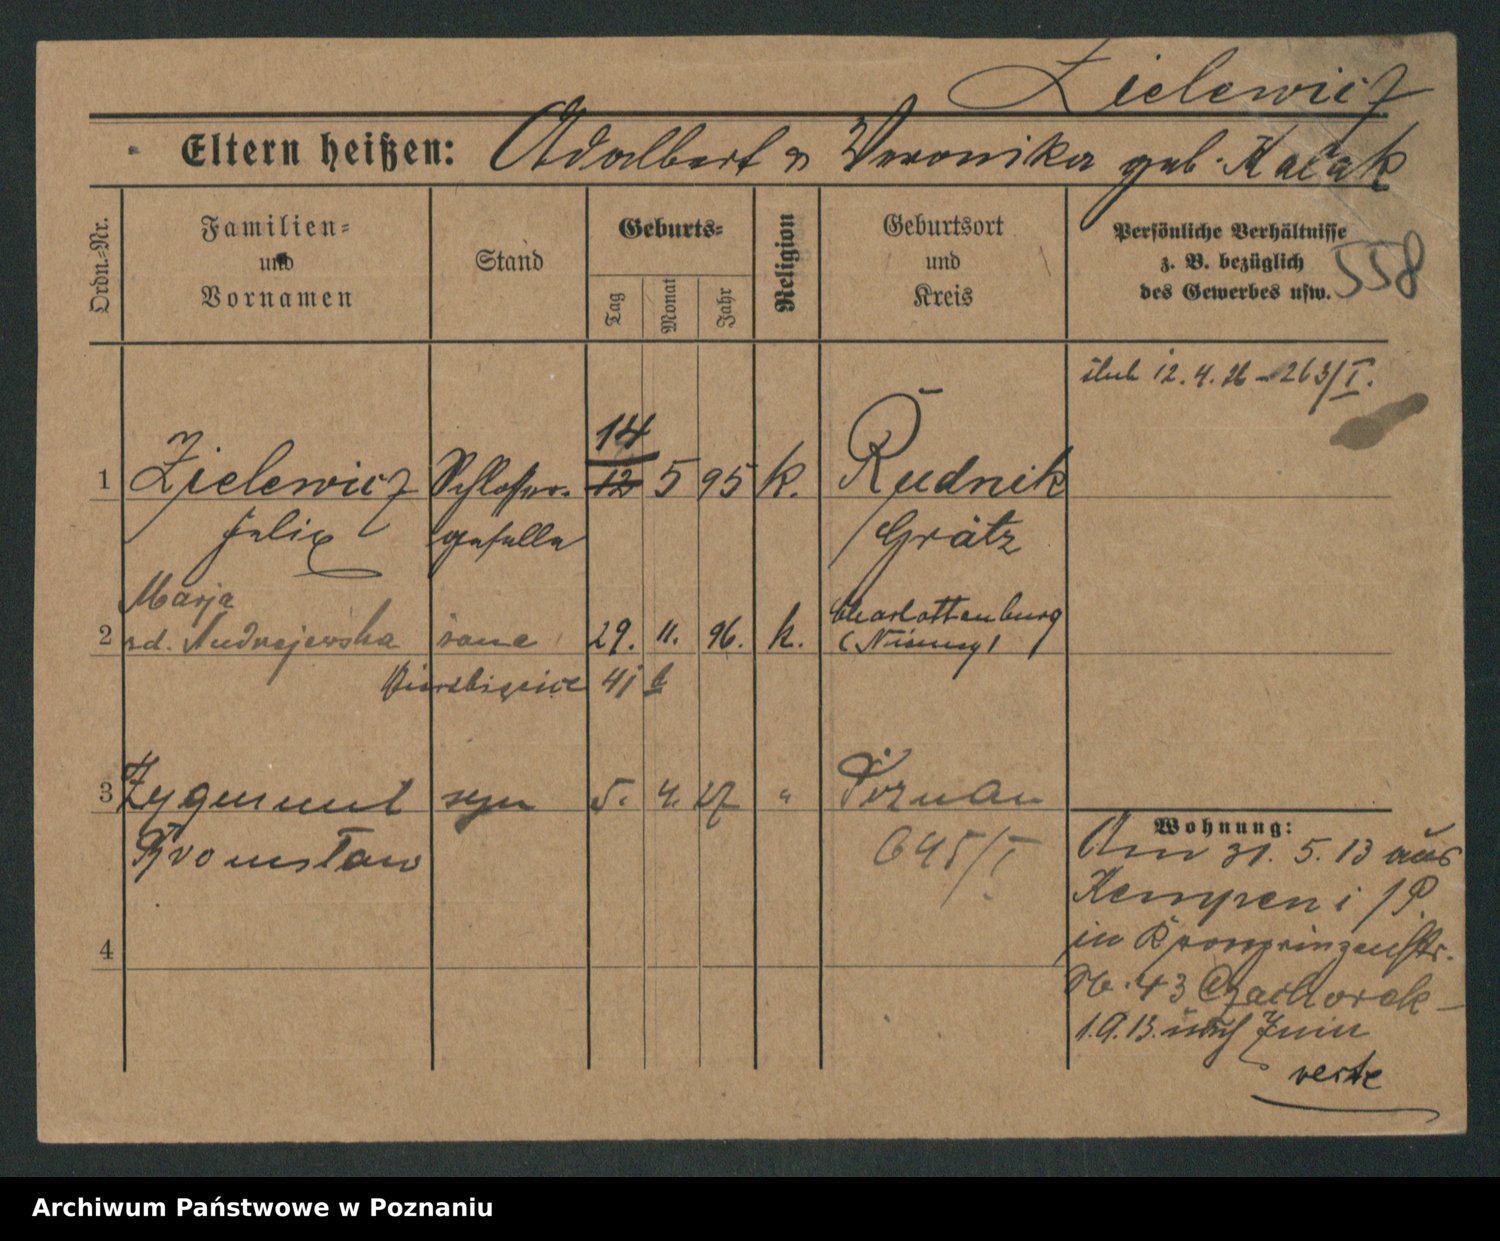 Zielewicz
Eltern heißen: Adalbert u Veronika geb. Kaçak
Ordn.-Nr.
Familien-
und
Vornamen
Stand
Geburts-
Tag
Monat
Jahr
Religion
Geburtsort
und
Kreis
Persönliche Verhältnisse
z. B. bezüglich
des Gewerbes usw.
558
ślub 12.4.26 - 263/I.
14
1 Zielewicz Schlosser- 12 5 95 k. Rudnik
Felix geselle Grätz
Marja
2 rd. Andrzejewska żona 29. 11. 96. k. Charlottenburg
(Niemcy)
3 Zygmunt syn 5. 4. 27 " Poznań
Bronisław 645/I
4
Wohnung:
Am 31. 5. 13 aus
Kempen i/P.
in Kronprinzenstr.
No. 43
1.9.13. nach Znin
verte
Archiwum Państwowe w Poznaniu